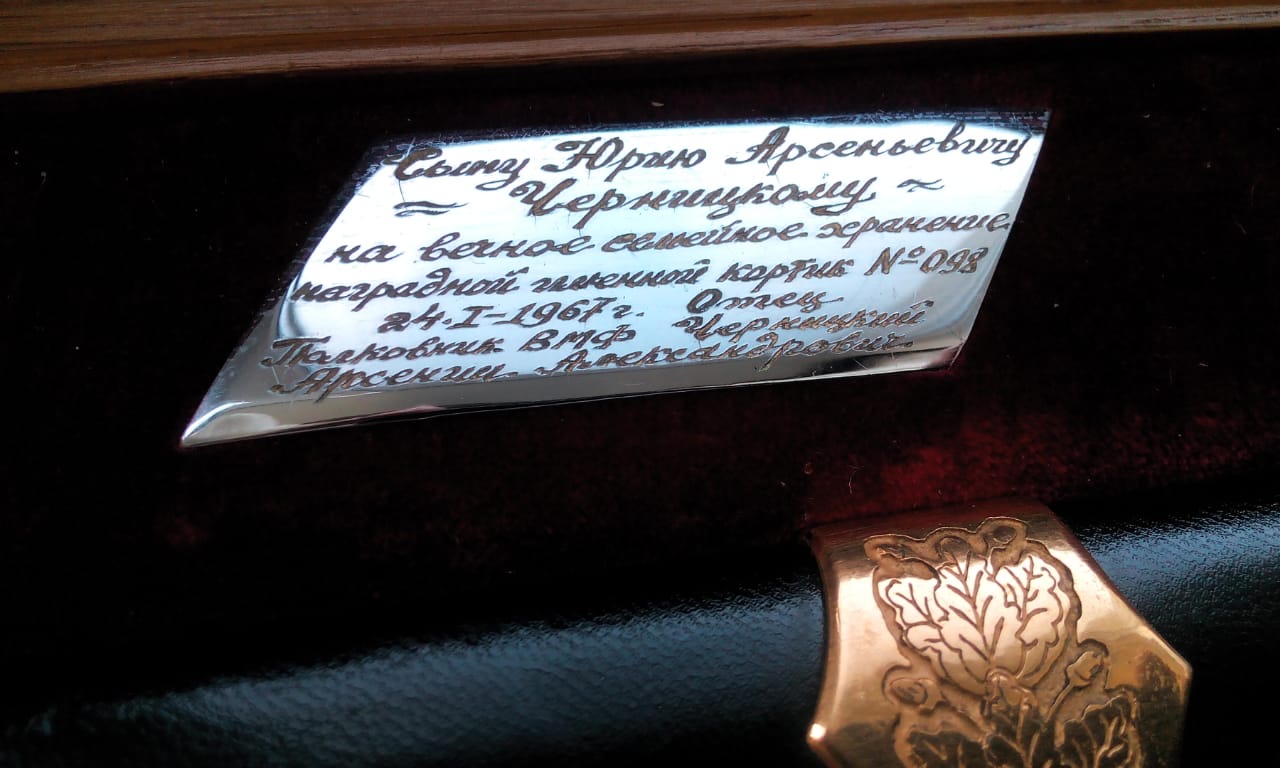 Сыну Юрию Арсеньевичу
= Черницкому ~
на вечное семейное хранение
наградной именной кортик № 098
24.I-1967г. Отец
Полковник ВМФ Черницкий
Арсений Александрович.